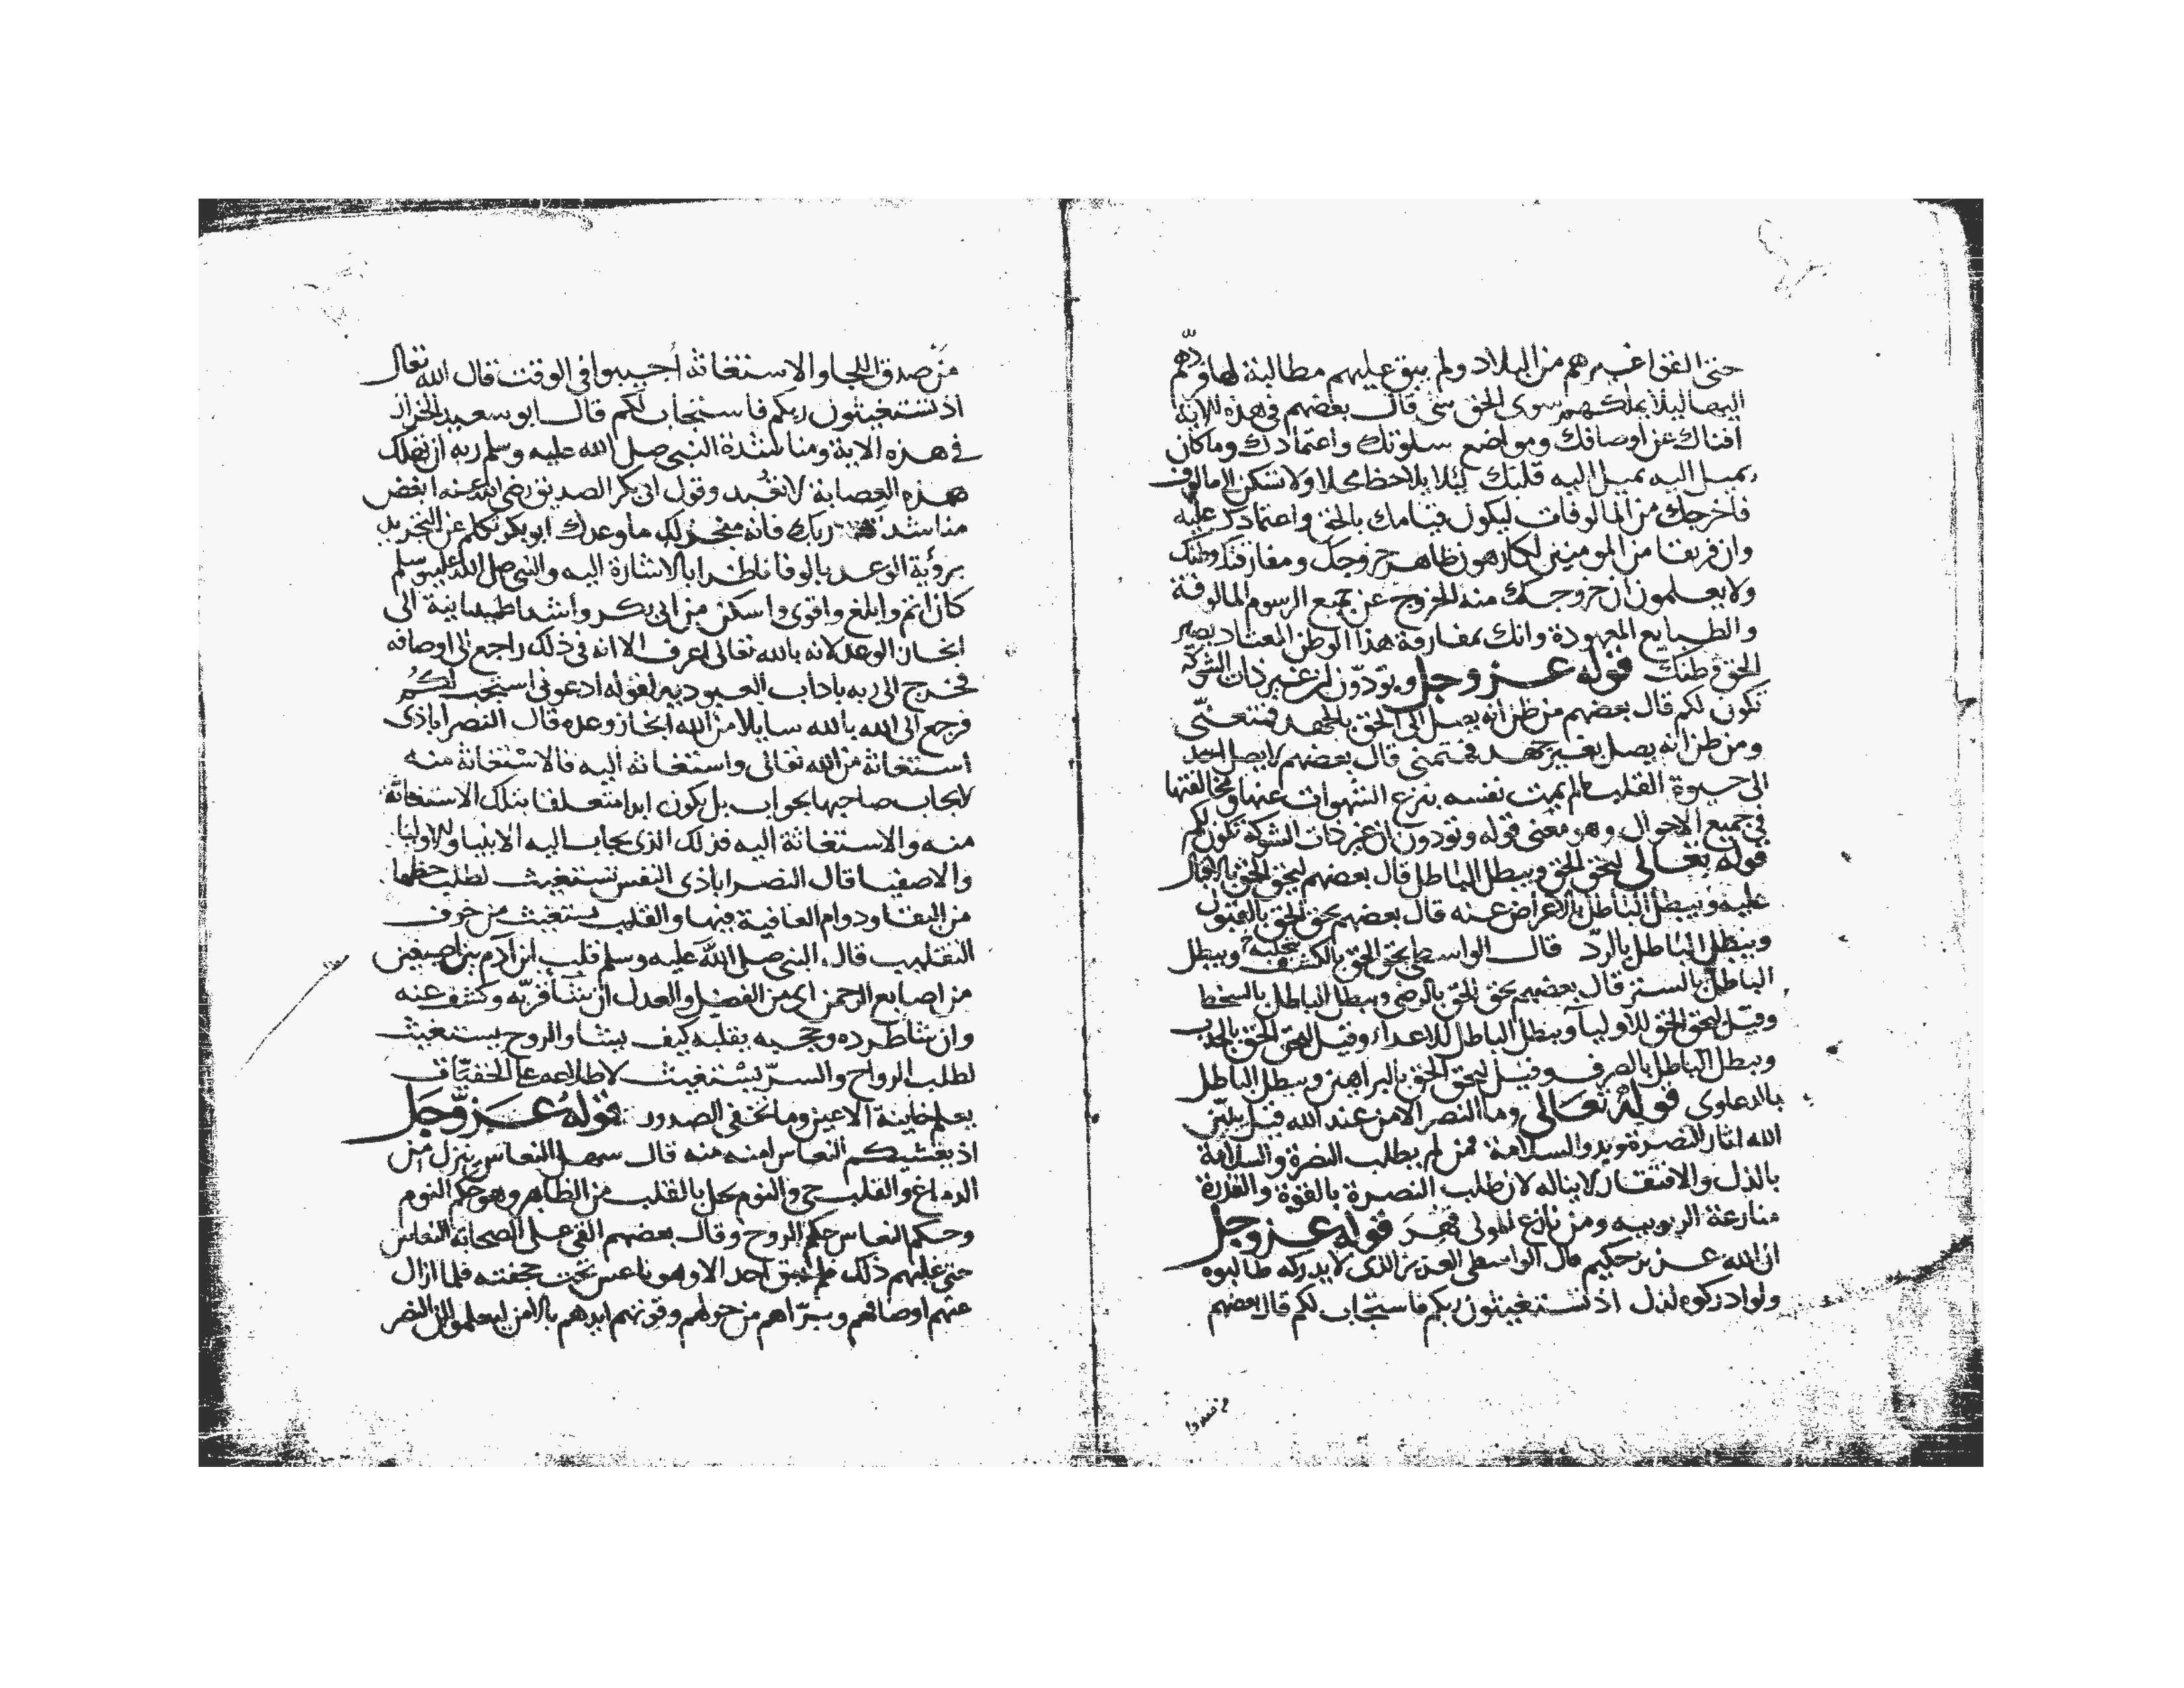 حتى القوا غيرهم من البلاد ولم يبق عليهم مطالبة لها وردهم
اليها ليلا يملكهم سوى الحق شى قال بعضهم فى هذه الاية
افناك عن اوصافك ومواضع سلوتك واعتمادك وما كان
يميل اليه يميل اليه قلبك ليلا يلاحظ محلا ولا تسكن الى مالوف
فاخرجك من المالوفات ليكون قيامك بالحق واعتمادك عليه
وان فريقا من المومنين لكارهون ظاهر خروجك ومفارقتك وطنك
ولا يعلمون ان خروجك منه الخروج عن جميع الرسوم المالوفة
والطبايع المعهودة وانك بمفارقة هذا الوطن المعتاد يصير
الحق وطنك قوله عز وجل وتودّون ان غير ذات الشوكة
تكون لكم قال بعضهم من ظن انه يصل الى الحق بالجهد فتعنّى
ومن ظن انه يصل بغير جهد فتمنى قال بعضهم لا يصل احد
الى حيوة القلب ما لم يمت نفسه بنزع الشهوات عنها ومخالفتها
فى جميع الاحوال وهو معنى قوله وتودون ان غير ذات الشوكة تكون لكم
قوله تعالى ليحق الحق ويبطل الباطل قال بعضهم ليحق الحق بالاقبال
عليه ويبطل الباطل بالاعراض عنه قال بعضهم يحق الحق بالقبول
ويبطل الباطل بالردّ قال الواسطى يحق الحق بتجليه بالكشف ويبطل
الباطل بالستر قال بعضهم يحق الحق بالرضى ويبطل الباطل بالسخط
وقيل ليحق الحق للاوليا ويبطل الباطل للاعداء وقيل ليحق الحق بالجذب
ويبطل الباطل بالصرف وقيل ليحق الحق بالبراهين ويبطل الباطل
بالدعاوى قوله تعالى وما النصر الا من عند الله قيل بيّن
الله اثار النصرة وبدو السلامة فمن لم يطلب النصرة والسلامة
بالذل والافتقار لا يناله لان طلب النصرة بالقوة والقدرة
منازعة الربوبيه ومن نازع المولى قهر قوله عز وجل
ان الله عزيز حكيم قال الواسطى العزيز الذى لا يدركه طالبوه
ولو ادركوه لذل اذ تستغيثون ربكم فاستجاب لكم قال بعضهم
من صدق اللجا والاستغاثه أجيبوا فى الوقت قال الله تعالى
اذ تستغيثون ربكم فاستجاب لكم قال ابو سعيد الخراز
فى هذه الاية ومناشدة النبى صلى الله عليه وسلم ربه ان تهلك
هذه العصابة لا تعبد وقول ابى بكر الصديق رضى الله عنه ابعض
مناشدتك ربك فانه منجز لك ما وعدك ابو بكر تكلم عن التجريد
برؤية الوعد بالوفا ناظرا بالاشارة اليه والنبى صلى الله عليه وسلم
كان اتم وابلغ واقوى واسكن من ابى بكر واشد اطميانينة الى
انجاز الوعد لانه بالله تعالى اعرف الا انه فى ذلك راجع الى اوصافه
فخرج الى ربه باداب العبودية لقوله ادعونى استجب لكم
فرجع الى الله بالله سايلا من الله انجاز وعده قال النصراباذى
استغاثة من الله تعالى واستغاثه اليه فالاستغاثة منه
لا يجاب صاحبها بجواب بل يكون ابدا متعلقا بتلك الاستغاثة
منه والاستغاثة اليه فذلك الذى يجاب اليه الانبيا والاوليا
والاصفيا قال النصراباذى النفس تستغيث لطلب حظها
من البقا ودوام العافية فيها والقلب يستغيث من خوف
التقليب قال النبى صلى الله عليه وسلم قلب ابن آدم بين اصبعين
من اصابع الرحمن اى من الفضل والعدل ان شا قربه وكشف عنه
وان شا طرده وحجبه يقلبه كيف يشا والروح يستغيث
لطلب الرواح والسرّ يستغيث لاطلاعه على الخفيّات
يعلم خاينة الاعين وما تخفى الصدور قوله عز وجل
اذ يغشيكم النعاس امنه منه قال سهل النعاس ينزل من
الدماغ والقلب حى والنوم يحل بالقلب من الظاهر وهو حكم النوم
وحكم النعاس حكم الروح وقال بعضهم القى على الصحابة النعاس
حتى عليهم ذلك فلم يبق احد الا وهو ناعس تحت حجفته فلما ازال
عنهم اوصافهم وبرّاهم من حولهم وقوتهم ايدهم بالامن ليعلموا ان النصر